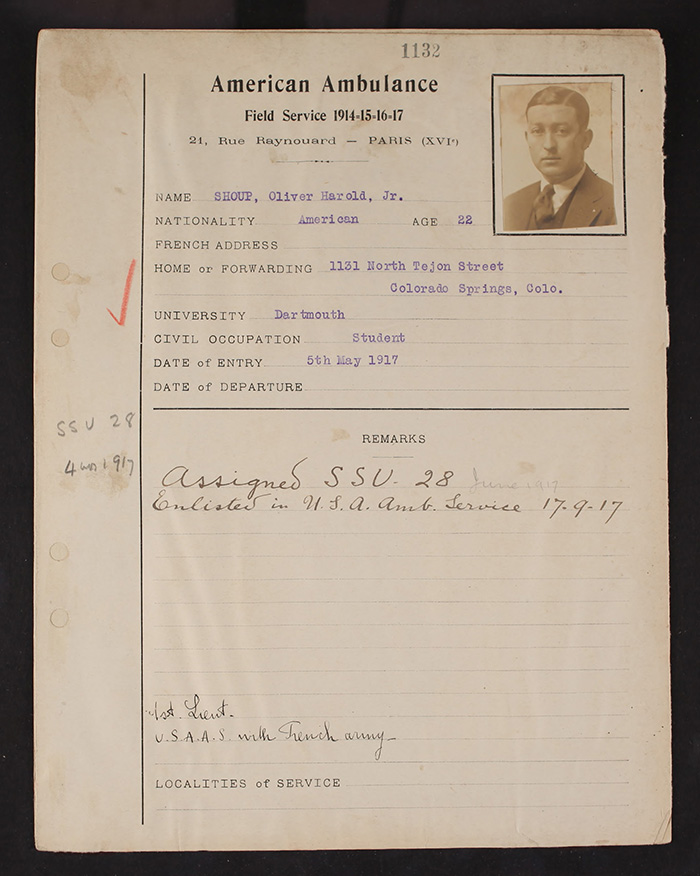 1132
American Ambulance
Field Service 1914-15-16-17
21, Rue Raynouard — PARIS (XVIe)
NAME SHOUP, Oliver Harold, Jr.
NATIONALITY American AGE 22
FRENCH ADDRESS
HOME or FORWARDING 1131 North Tejon Street
Colorado Springs, Colo.
UNIVERSITY Dartmouth
CIVIL OCCUPATION Student
DATE of ENTRY 5th May 1917
DATE of DEPARTURE
SSU 28
4 mos 1917
REMARKS
Assigned SSU. 28 June 1917
Enlisted in U.S.A. Amb. Service 17-9-17
1st. Lieut.
U.S.A.A.S. with French army
LOCALITIES of SERVICE